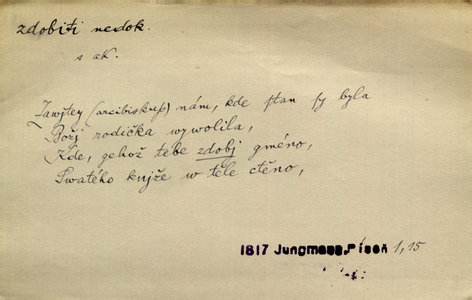 zdobiti nedok.
s ak.
Zawjtey (arcibiskup) nám, kde stan sy byla
Božj rodička wywolila,
Kde, gehož tebe zdobj gméno,
Swatého knjže w těle ctěno,
1817 Jungmann, Píseň 1,15